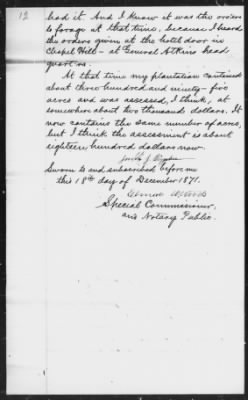 12
had it. And I know it was the orders
to forage at that time, because I heard
the orders given at the hotel door in
Chapel Hill - at General Atkins head
quarters.
At that time my plantation contained
about three hundred and ninety-five
acres and was assessed, I think, at
somewhere about two thousand dollars. It
now contains the same number of acres,
but I think the assessment is about
eighteen hundred dollars now.
Sworn to and subscribed before me
this 18th day of December 1871.
Special Commissioner,
and Notary Public.